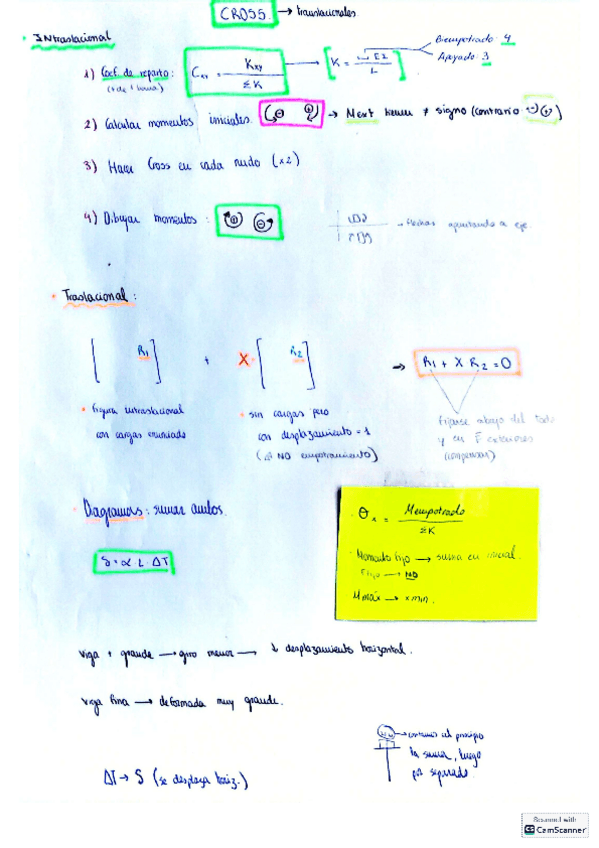 CROSS. → traslacionales.
• Intraslacional
Biempotrado: 4
Apoyado: 3
1) Coef. de reparto: Cxy = Kxy / ΣK → [K = EI / L]
2) Calcular momentos iniciales. → Ment tienen ≠ signo (contrario)
3) Hacer Cross en cada nudo (x2)
4) Dibujar momentos:
→ flechas apuntando a eje.
• Traslacional:
[ R1 ] + X [ R2 ] → R1 + X R2 = 0
• figura intraslacional
con cargas enunciado
• sin cargas pero
con desplazamiento = 1
(NO empotramiento)
Fijarse abajo del todo
y en F exteriores
(compensar)
Diagramas: sumar ambos.
δ = α · L · ΔT
θx = Mempotrado / ΣK
Momento fijo → suma en inicial.
→ NO
Mmáx → x min.
viga + grande → giro menor → ↓ desplazamiento horizontal.
viga fina → deformada muy grande.
→ contamos al principio
la suma, luego
por separado
ΔT → δ (se desplaza horiz.)
Scanned with
CS CamScanner